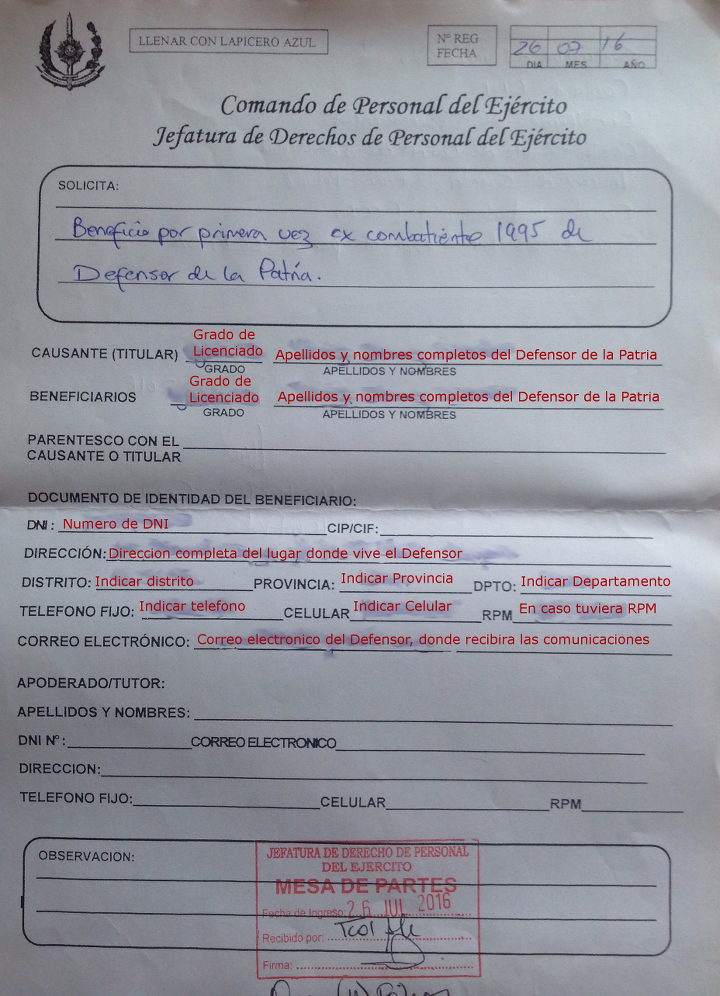 LLENAR CON LAPICERO AZUL
Nº REG
FECHA
26 07 16
DIA MES AÑO
Comando de Personal del Ejército
Jefatura de Derechos de Personal del Ejército
SOLICITA:
Beneficio por primera vez ex combatiente 1995 de
Defensor de la Patria.
CAUSANTE (TITULAR) Grado de Licenciado Apellidos y nombres completos del Defensor de la Patria
GRADO APELLIDOS Y NOMBRES
BENEFICIARIOS Grado de Licenciado Apellidos y nombres completos del Defensor de la Patria
GRADO APELLIDOS Y NOMBRES
PARENTESCO CON EL
CAUSANTE O TITULAR
DOCUMENTO DE IDENTIDAD DEL BENEFICIARIO:
DNI: Numero de DNI CIP/CIF:
DIRECCIÓN: Direccion completa del lugar donde vive el Defensor
DISTRITO: Indicar distrito PROVINCIA: Indicar Provincia DPTO: Indicar Departamento
TELEFONO FIJO: Indicar telefono CELULAR Indicar Celular RPM En caso tuviera RPM
CORREO ELECTRÓNICO: Correo electronico del Defensor, donde recibira las comunicaciones
APODERADO/TUTOR:
APELLIDOS Y NOMBRES:
DNI Nº: CORREO ELECTRONICO
DIRECCION:
TELEFONO FIJO: CELULAR RPM
OBSERVACION:
JEFATURA DE DERECHO DE PERSONAL
DEL EJERCITO
MESA DE PARTES
Fecha de Ingreso: 26 JUL 2016
Recibido por:
Firma: